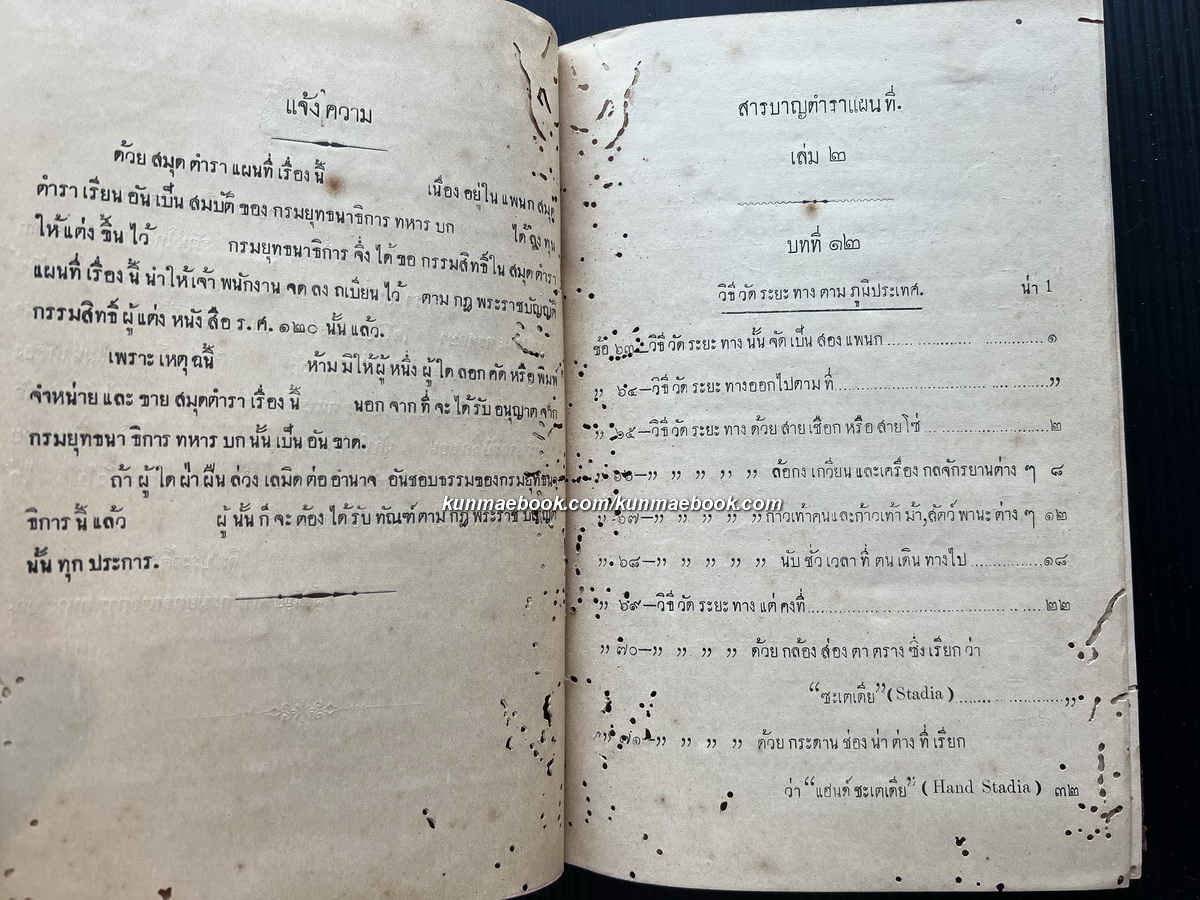 แจ้งความ
ด้วย สมุด ตำรา แผนที่ เรื่อง นี้ เนื่อง อยู่ใน แพนก สมุด
ตำรา เรียน อัน เป็น สมบัติ ของ กรมยุทธนาธิการ ทหาร บก ได้ ลง ทุน
ให้ แต่ง ขึ้น ไว้ กรมยุทธนาธิการ จึ่ง ได้ ขอ กรรมสิทธิ์ ใน สมุด ตำรา
แผนที่ เรื่อง นี้ นำให้ เจ้า พนักงาน จด ลง ถเบียน ไว้ ตาม กฎ พระราชบัญญัติ
กรรมสิทธิ์ ผู้ แต่ง หนัง สือ ร. ศ. ๑๒๐ นั้น แล้ว.
เพราะ เหตุ ฉนี้ ห้าม มิให้ ผู้ หนึ่ง ผู้ ใด ลอก คัด หรือ พิมพ์
จำหน่าย และ ขาย สมุดตำรา เรื่อง นี้ นอก จาก ที่ จะ ได้รับ อนุญาต จาก
กรมยุทธนา ธิการ ทหาร บก นั้น เป็น อัน ขาด.
ถ้า ผู้ ใด ฝ่า ฝืน ล่วง เลมิด ต่อ อำนาจ อันชอบธรรมของกรมยุทธนา
ธิการ นี้ แล้ว ผู้ นั้น ก็ จะ ต้อง ได้ รับ ทัณฑ์ ตาม กฎ พระราช บัญญัติ
นั้น ทุก ประการ.
สารบาญตำราแผนที่.
เล่ม ๒
บทที่ ๑๒
วิธี วัด ระยะ ทาง ตาม ภูมิประเทศ. น่า 1
ข้อ ๖๓—วิธี วัด ระยะ ทาง นั้น จัด เป็น สอง แพนก ........................ ๑
„ ๖๔—วิธี วัด ระยะ ทางออกไปตาม ที่ ........................ „
„ ๖๕—วิธี วัด ระยะ ทาง ด้วย สาย เชือก หรือ สายโซ่ ........................ ๒
„ ๖๖—„ „ „ „ „ ล้อกง เกวียน และเครื่อง กลจักรยานต่าง ๆ ๘
„ ๖๗—„ „ „ „ „ ก้าวเท้าคนและก้าวเท้า ม้า, สัตว์ พานะ ต่าง ๆ ๑๒
„ ๖๘—„ „ „ „ „ นับ ชั่ว เวลา ที่ ตน เดิน ทางไป ............... ๑๘
„ ๖๙—วิธี วัด ระยะ ทาง แต่ คงที่ ........................ ๒๒
„ ๗๐—„ „ „ „ ด้วย กล้อง ส่อง ตา ตราง ซึ่ง เรียก ว่า
“ซะเตเดีย” (Stadia) ........................ „
„ ๗๑—„ „ „ „ ด้วย กระดาน ช่อง น่า ต่าง ที่ เรียก
ว่า “แฮนด์ ซะเตเดีย” (Hand Stadia) ๓๒
kunmaebook.com/kunmaebook.com